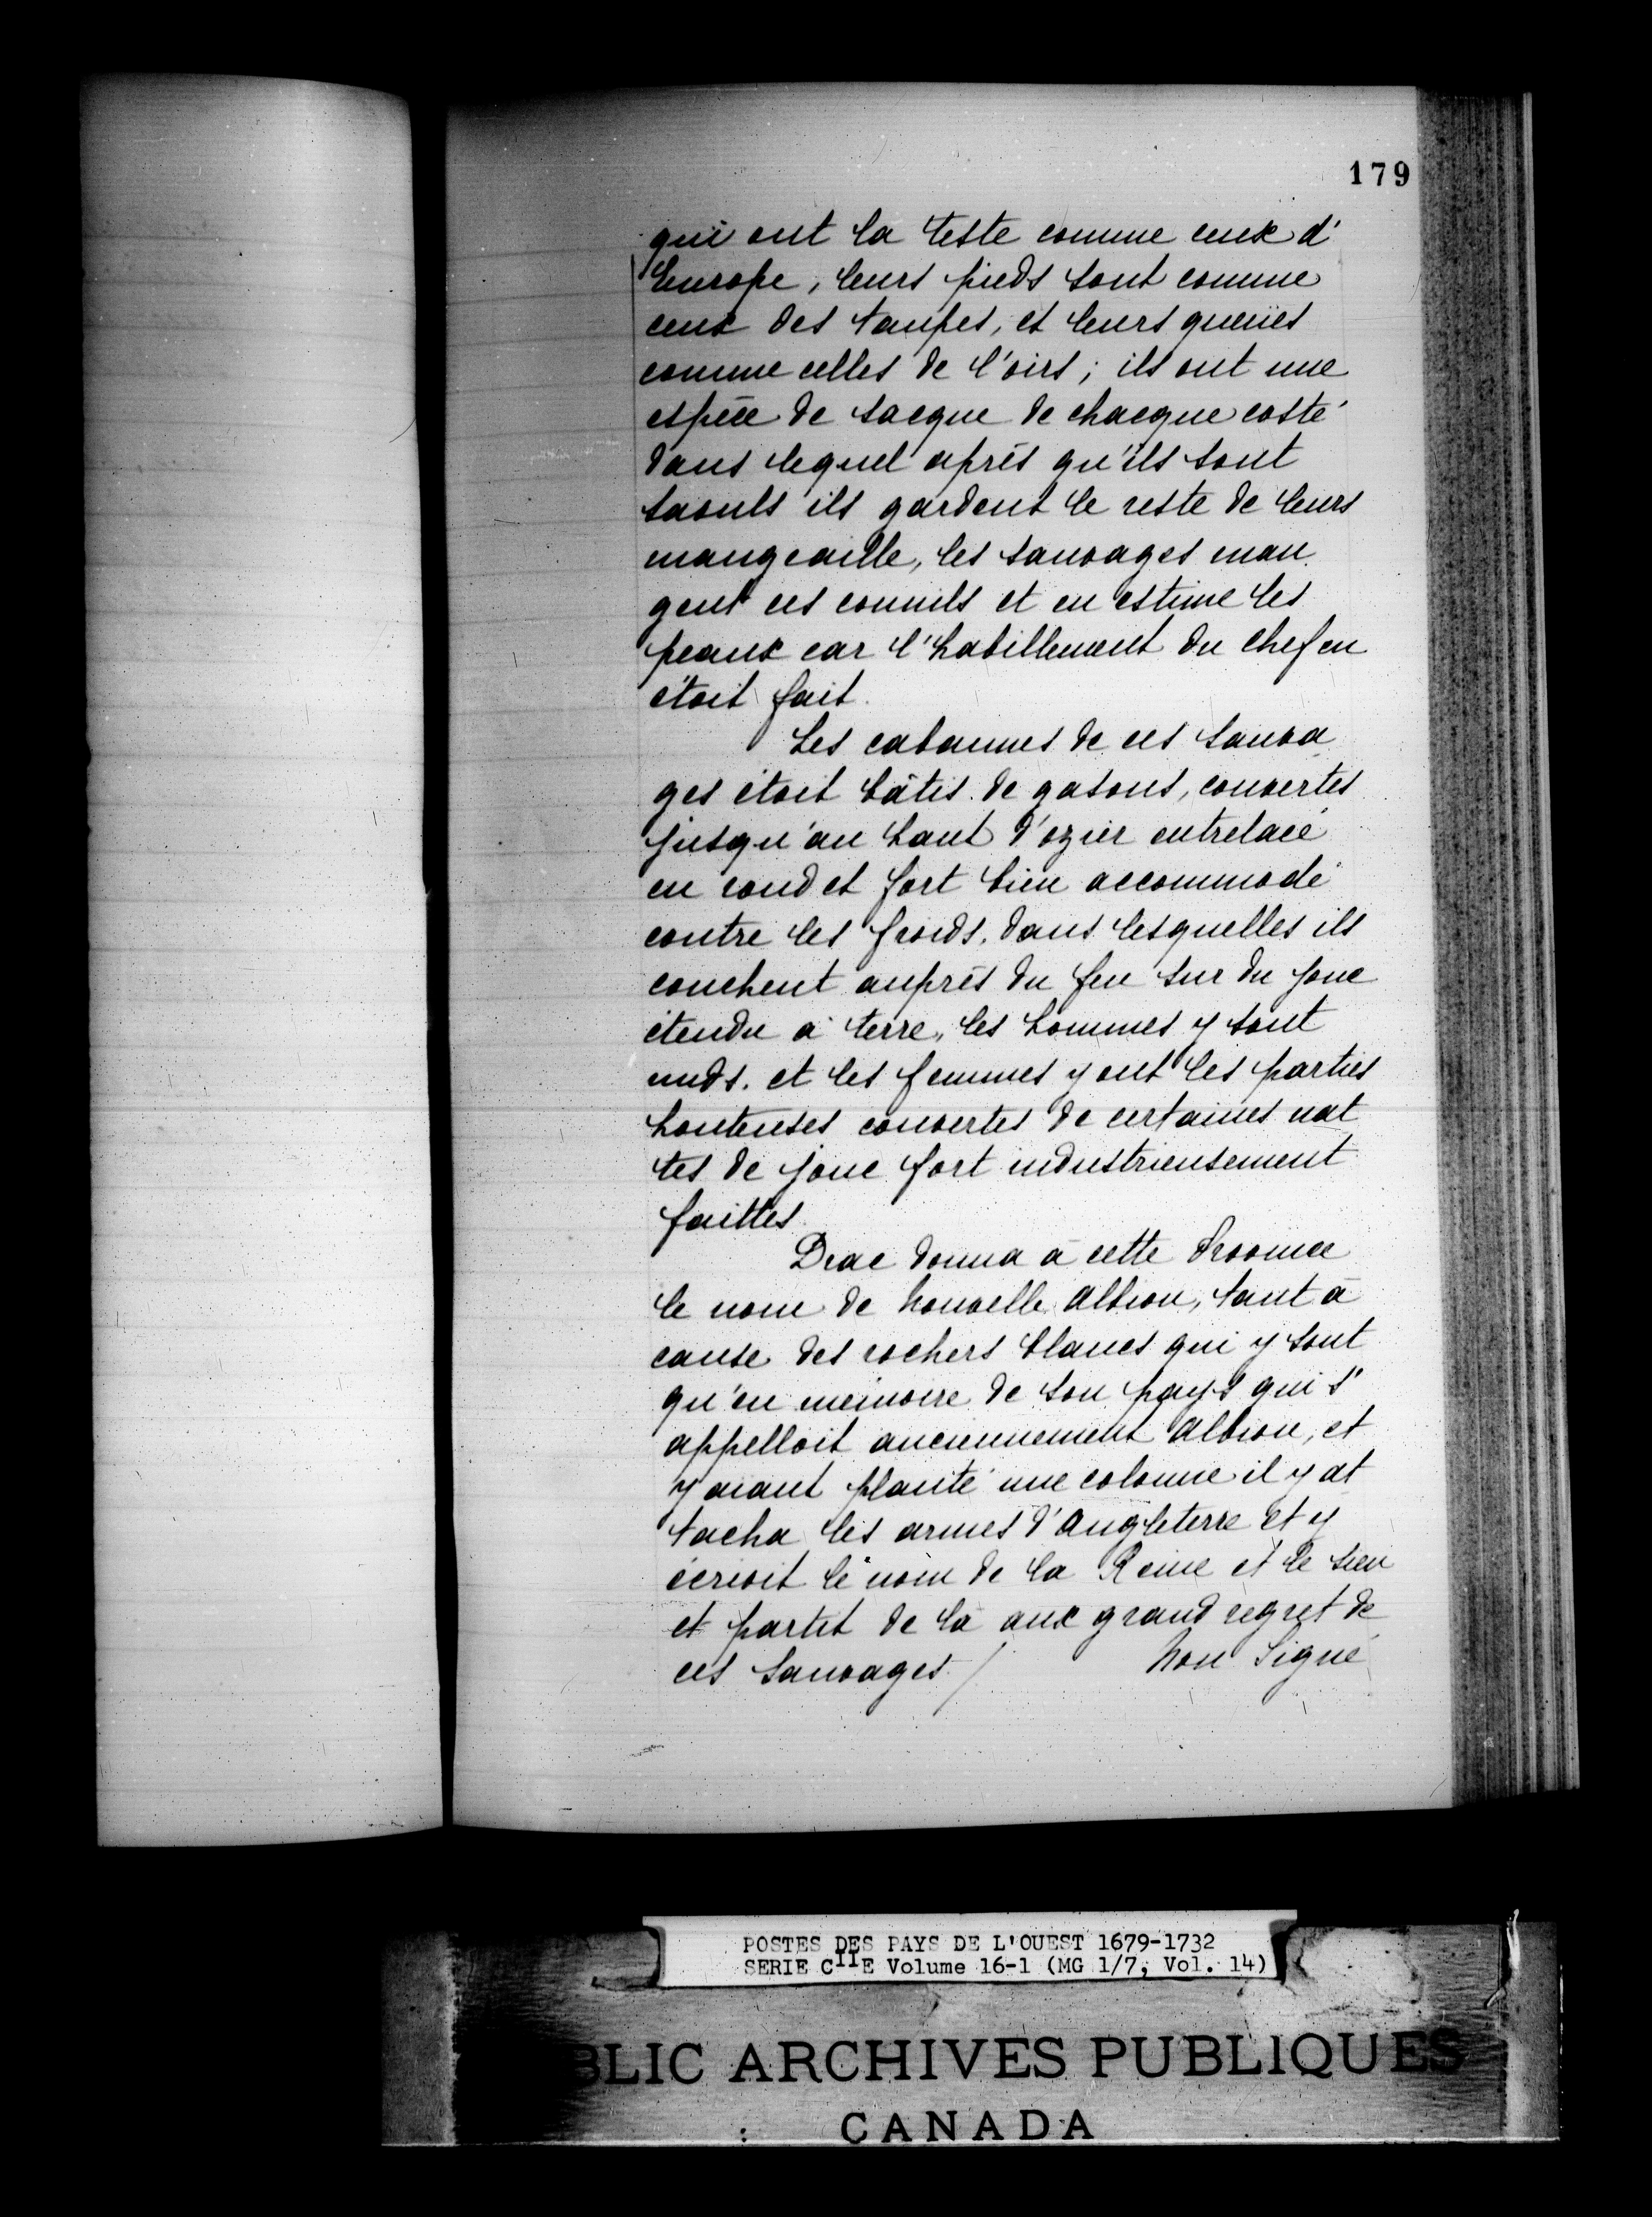 179
qui ont la teste comme ceux d'
Europe, leurs pieds sont comme
ceux des taupes, et leurs queües
comme celles de l'oirs; ils ont une
espèce de sacque de chacque costé
dans lequel après qu'ils sont
saouls ils gardent le reste de leurs
mangeaille, les sauvages man
gent ces connils et en estime les
peaux car l'habillement du chef en
étoit fait.
Les cabannes de ces sauva
ges étoit bâtis de gasons, couvertes
jusqu'au haut d'ozier entrelacé
en rond et fort bien accommodé
contre les froids, dans lesquelles ils
couchent auprès du feu sur du jonc
étendu à terre, les hommes y sont
nuds. et les femmes y ont les parties
honteuses couvertes de certaines nat
tes de jonc fort industrieusement
faittes.
Drac donna à cette Province
le nom de Nouvelle Albion, tant à
cause des rochers blancs qui y sont
qu'en mémoire de son pays qui s'
appelloit anciennement Albion, et
y aiant planté une colonne il y at
tacha les armes d'Angleterre et y
écrivit le nom de la Reine et le sien
et partit de là aux grand regret de
ces sauvages / Non Signé
POSTES DES PAYS DE L'OUEST 1679-1732
SERIE CIIE Volume 16-1 (MG 1/7, Vol. 14)
BLIC ARCHIVES PUBLIQUES
CANADA